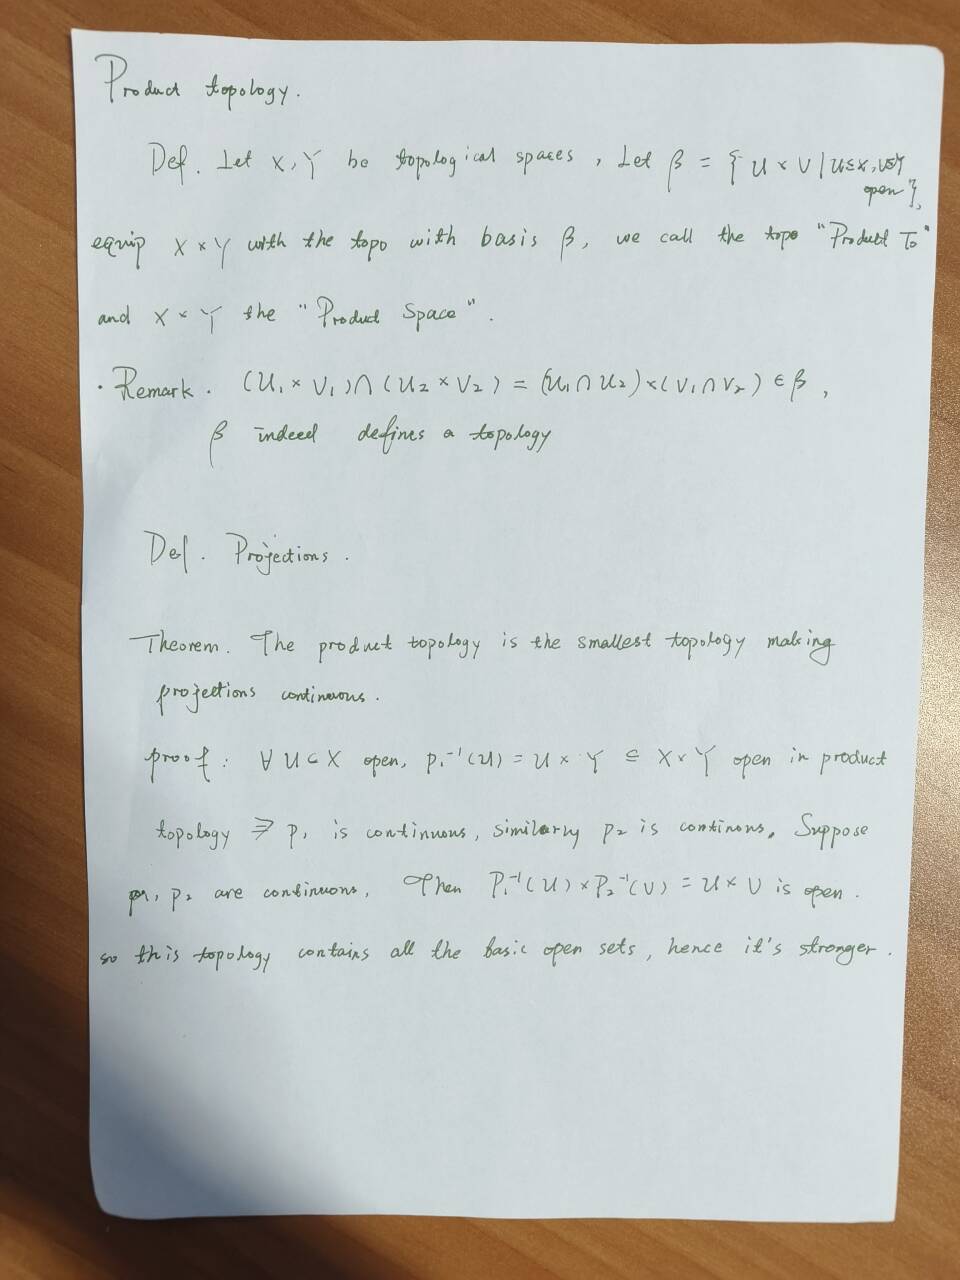 Product topology.
Def. Let X, Y be topological spaces, Let β = { U × V | U⊆X, V⊆Y
open },
equip X × Y with the topo with basis β, we call the topo "Product To"
and X × Y the "Product Space".
· Remark. (U₁ × V₁) ∩ (U₂ × V₂) = (U₁ ∩ U₂) × (V₁ ∩ V₂) ∈ β,
β indeed defines a topology
Def. Projections.
Theorem. The product topology is the smallest topology making
projections continuous.
proof: ∀ U ⊂ X open, p₁⁻¹(U) = U × Y ⊆ X × Y open in product
topology ⇒ p₁ is continuous, similarry p₂ is continous. Suppose
p₁, p₂ are continuons, Then P₁⁻¹(U) × P₂⁻¹(V) = U × V is open.
so this topology contains all the basic open sets, hence it's stronger.